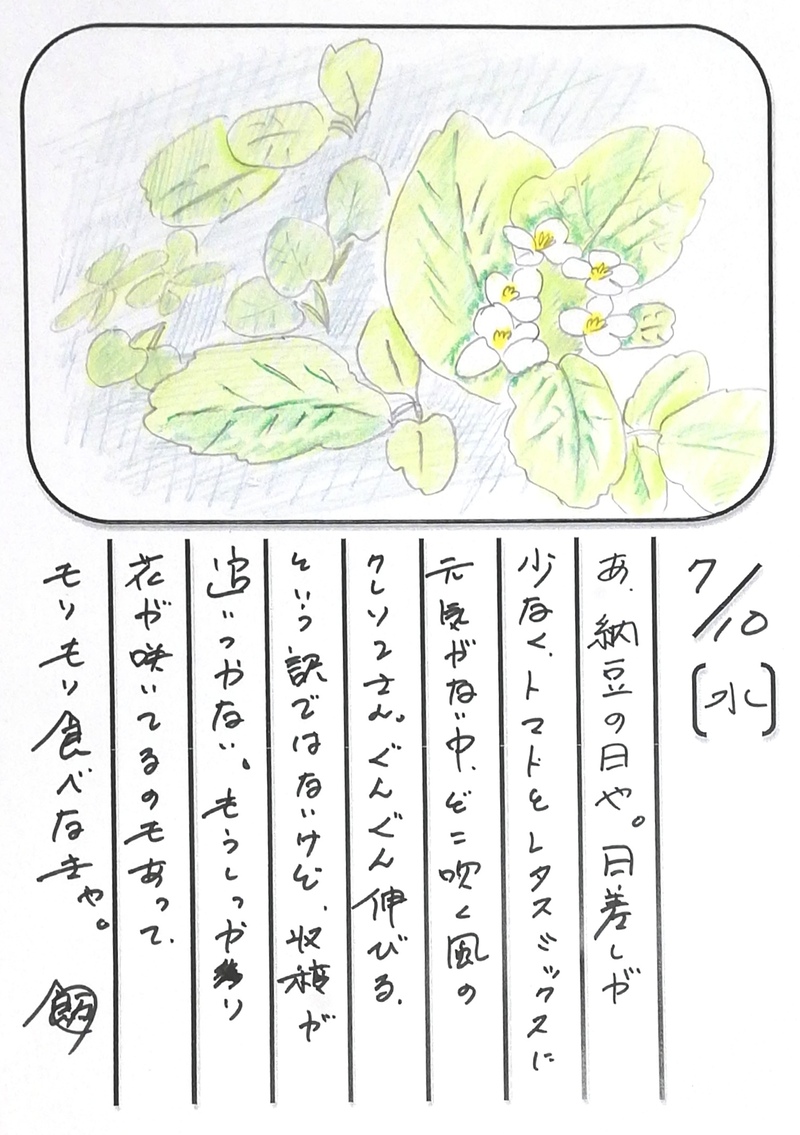 7/10
[水]
あ、納豆の日や。日差しが
少なく、トマトとレタスミックスに
元気がない中、どこ吹く風の
クレソンさん。ぐんぐん伸びる、
という訳ではないけど、収穫が
追いつかない。もうしっかり
花が咲いてるのもあって、
モリモリ食べなきゃ。